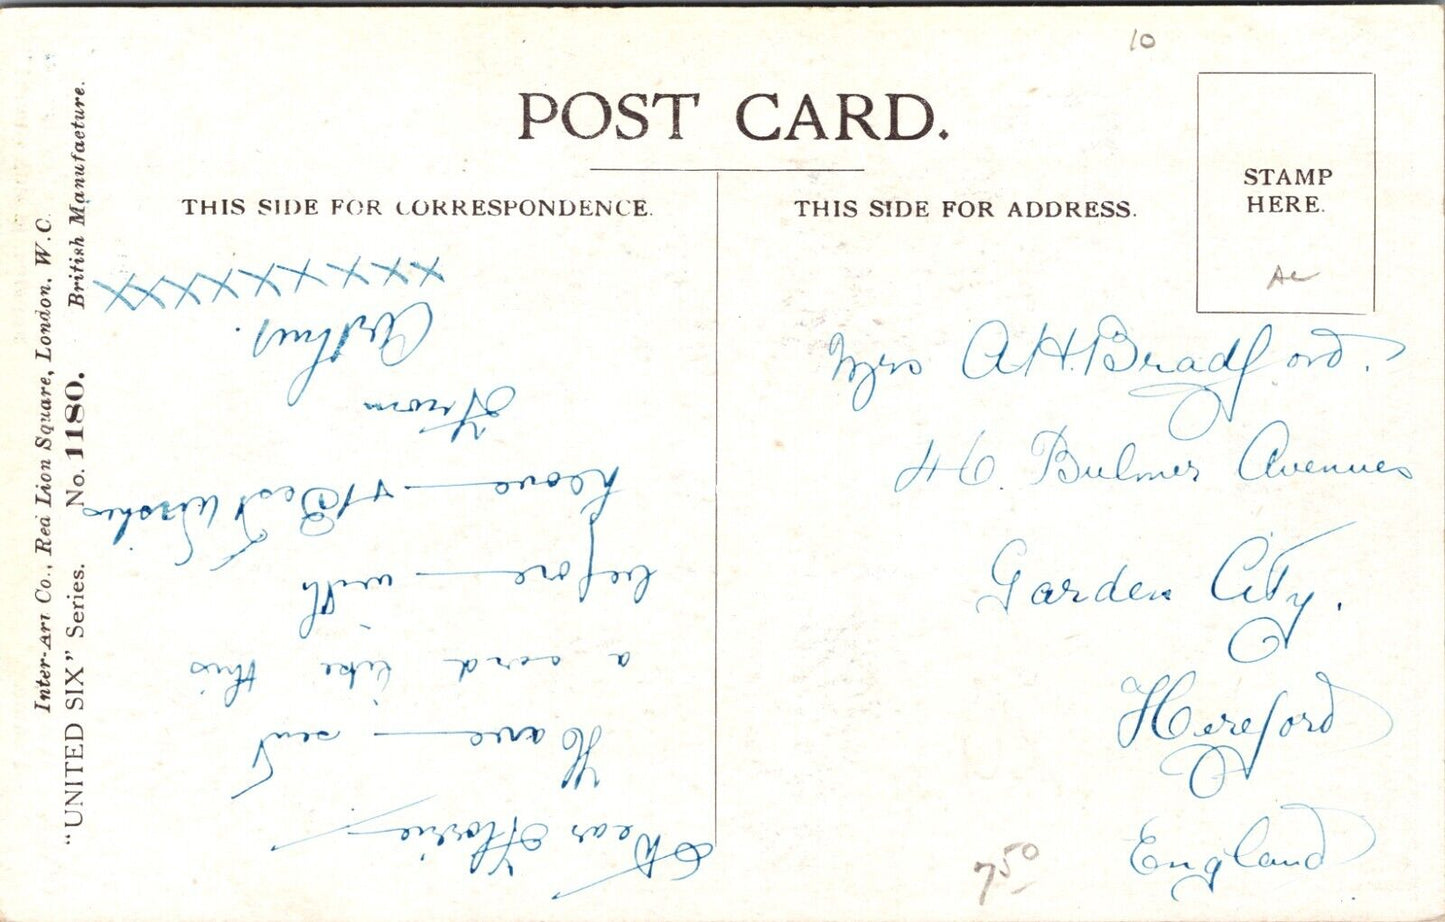 10
POST CARD.
THIS SIDE FOR CORRESPONDENCE.
Dear Florie
Have sent
a card like this
before with
Love + Best Wishes
From
Arthur.
XXXXXXXXX
THIS SIDE FOR ADDRESS.
STAMP
HERE.
Mrs A H. Bradford.
46 Bulmer Avenues
Garden City.
Hereford
England
7.50
Inter-Art Co., Red Lion Square, London, W.C.
British Manufacture.
"UNITED SIX" Series. No. 1180.